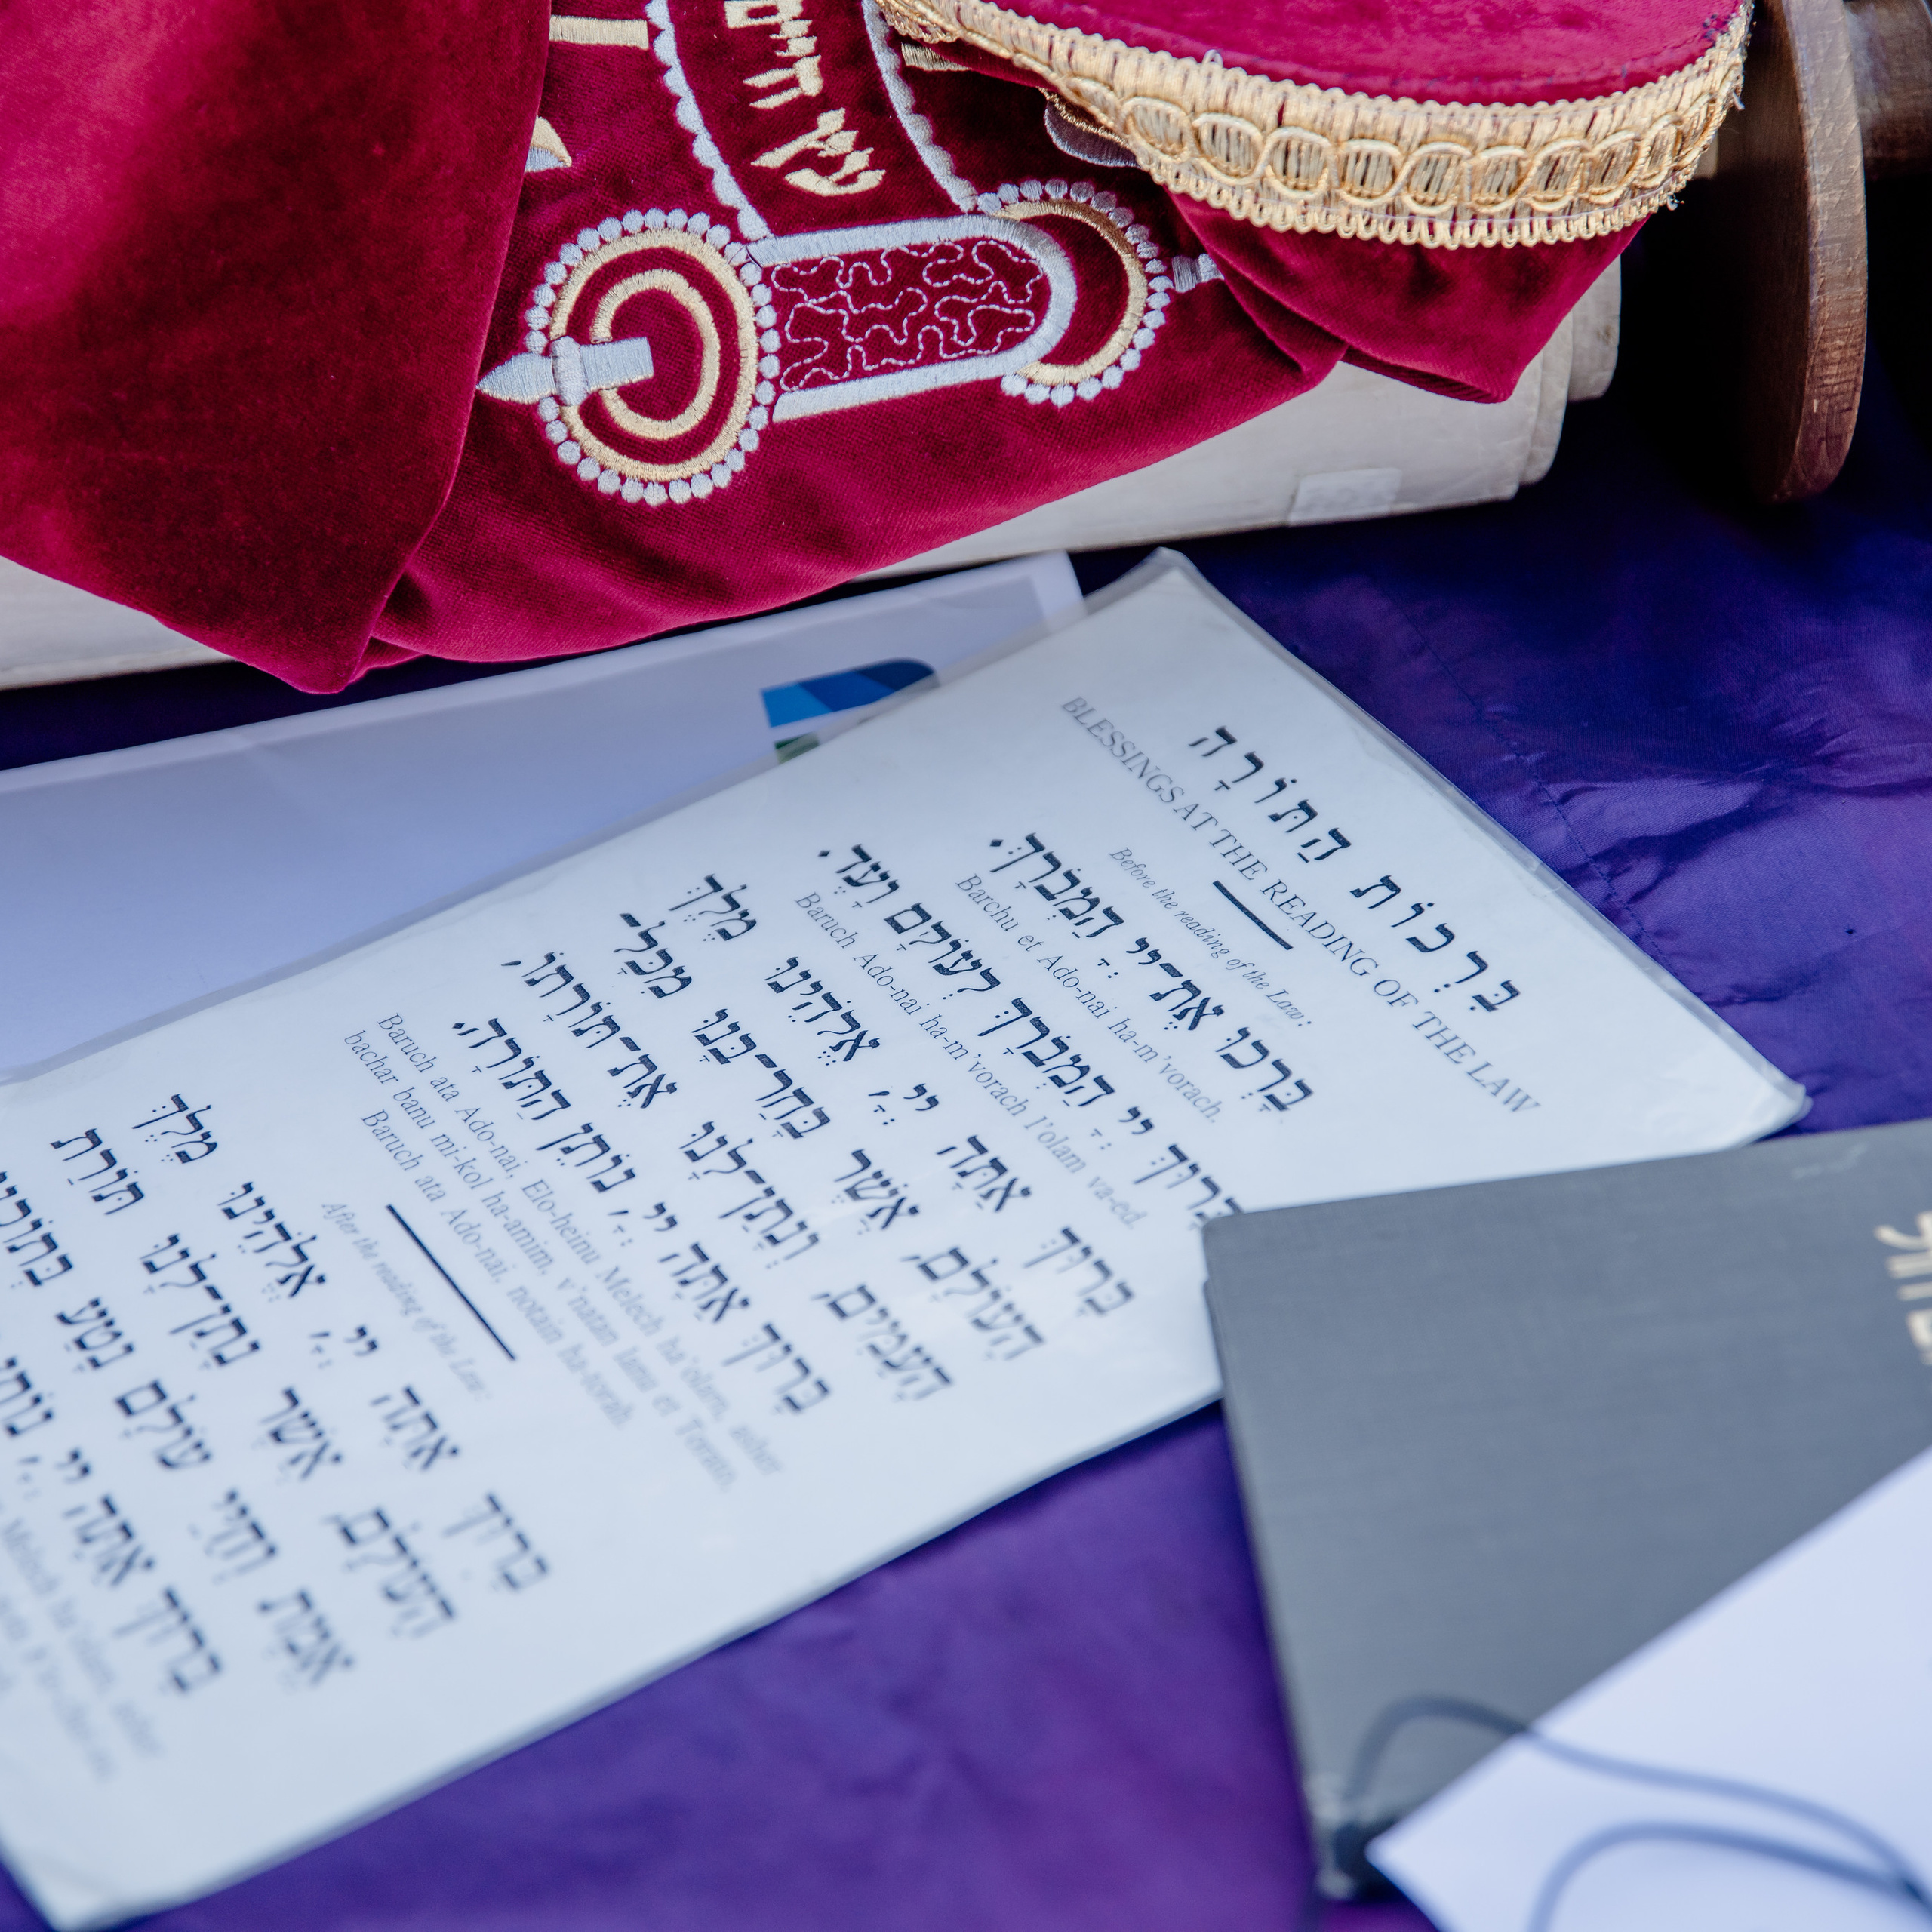 עץ חיים
בִּרְכוֹת הַתּוֹרָה
BLESSINGS AT THE READING OF THE LAW
Before the reading of the Law:
בָּרְכוּ אֶת־יְיָ הַמְבֹרָךְ.
Barchu et Ado-nai ha-m'vorach.
בָּרוּךְ יְיָ הַמְבֹרָךְ לְעוֹלָם וָעֶד.
Baruch Ado-nai ha-m'vorach l'olam va-ed.
בָּרוּךְ אַתָּה יְיָ, אֱלֹהֵינוּ מֶלֶךְ
הָעוֹלָם, אֲשֶׁר בָּחַר־בָּנוּ מִכָּל־
הָעַמִּים, וְנָתַן־לָנוּ אֶת־תּוֹרָתוֹ,
בָּרוּךְ אַתָּה יְיָ, נוֹתֵן הַתּוֹרָה.
Baruch ata Ado-nai, Elo-heinu Melech ha'olam, asher
bachar banu mi-kol ha-amim, v'natan lanu et Torato,
Baruch ata Ado-nai, notain ha-torah.
After the reading of the Law:
בָּרוּךְ אַתָּה יְיָ, אֱלֹהֵינוּ מֶלֶךְ
הָעוֹלָם, אֲשֶׁר נָתַן־לָנוּ תּוֹרַת
אֱמֶת וְחַיֵּי עוֹלָם נָטַע
בָּרוּךְ אַתָּה יְיָ,
Melech ha'olam, asher